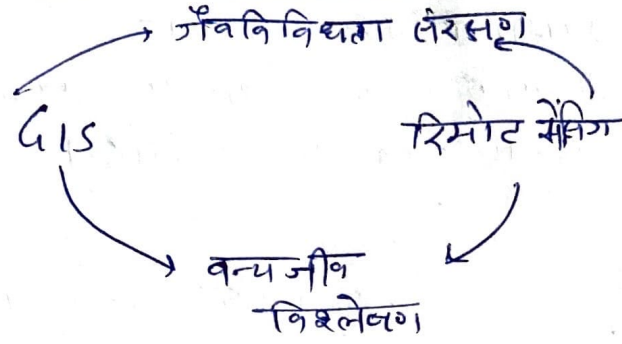 जैवविविधता संरक्षण
GIS रिमोट सेंसिंग
वन्यजीव
विश्लेषण